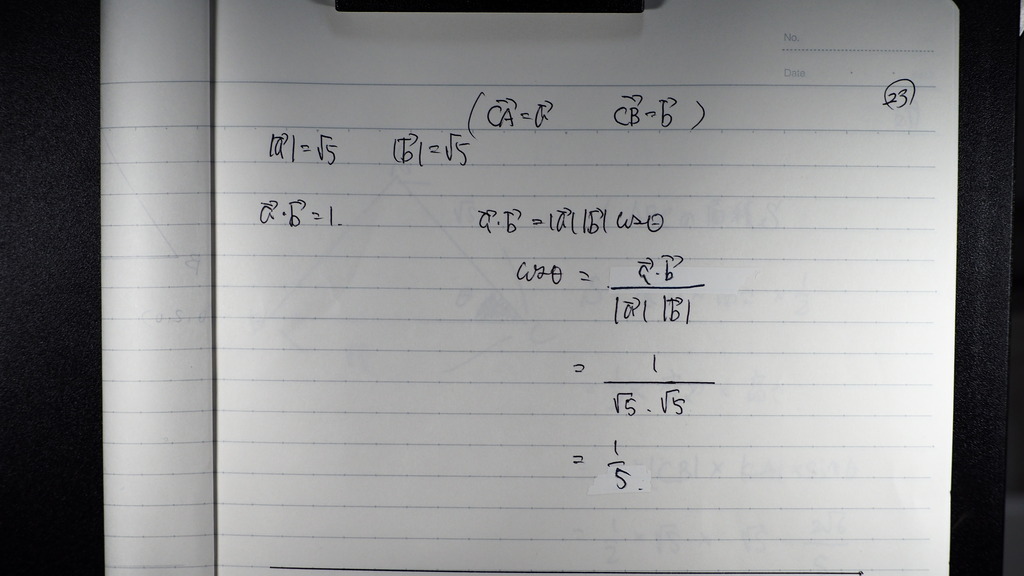 No.
Date
23
(CA⃗=a⃗ CB⃗=b⃗)
|a⃗|=√5 |b⃗|=√5
a⃗·b⃗=1. a⃗·b⃗=|a⃗||b⃗|cosθ
cosθ = a⃗·b⃗ / |a⃗| |b⃗|
= 1 / √5 . √5
= 1 / 5.